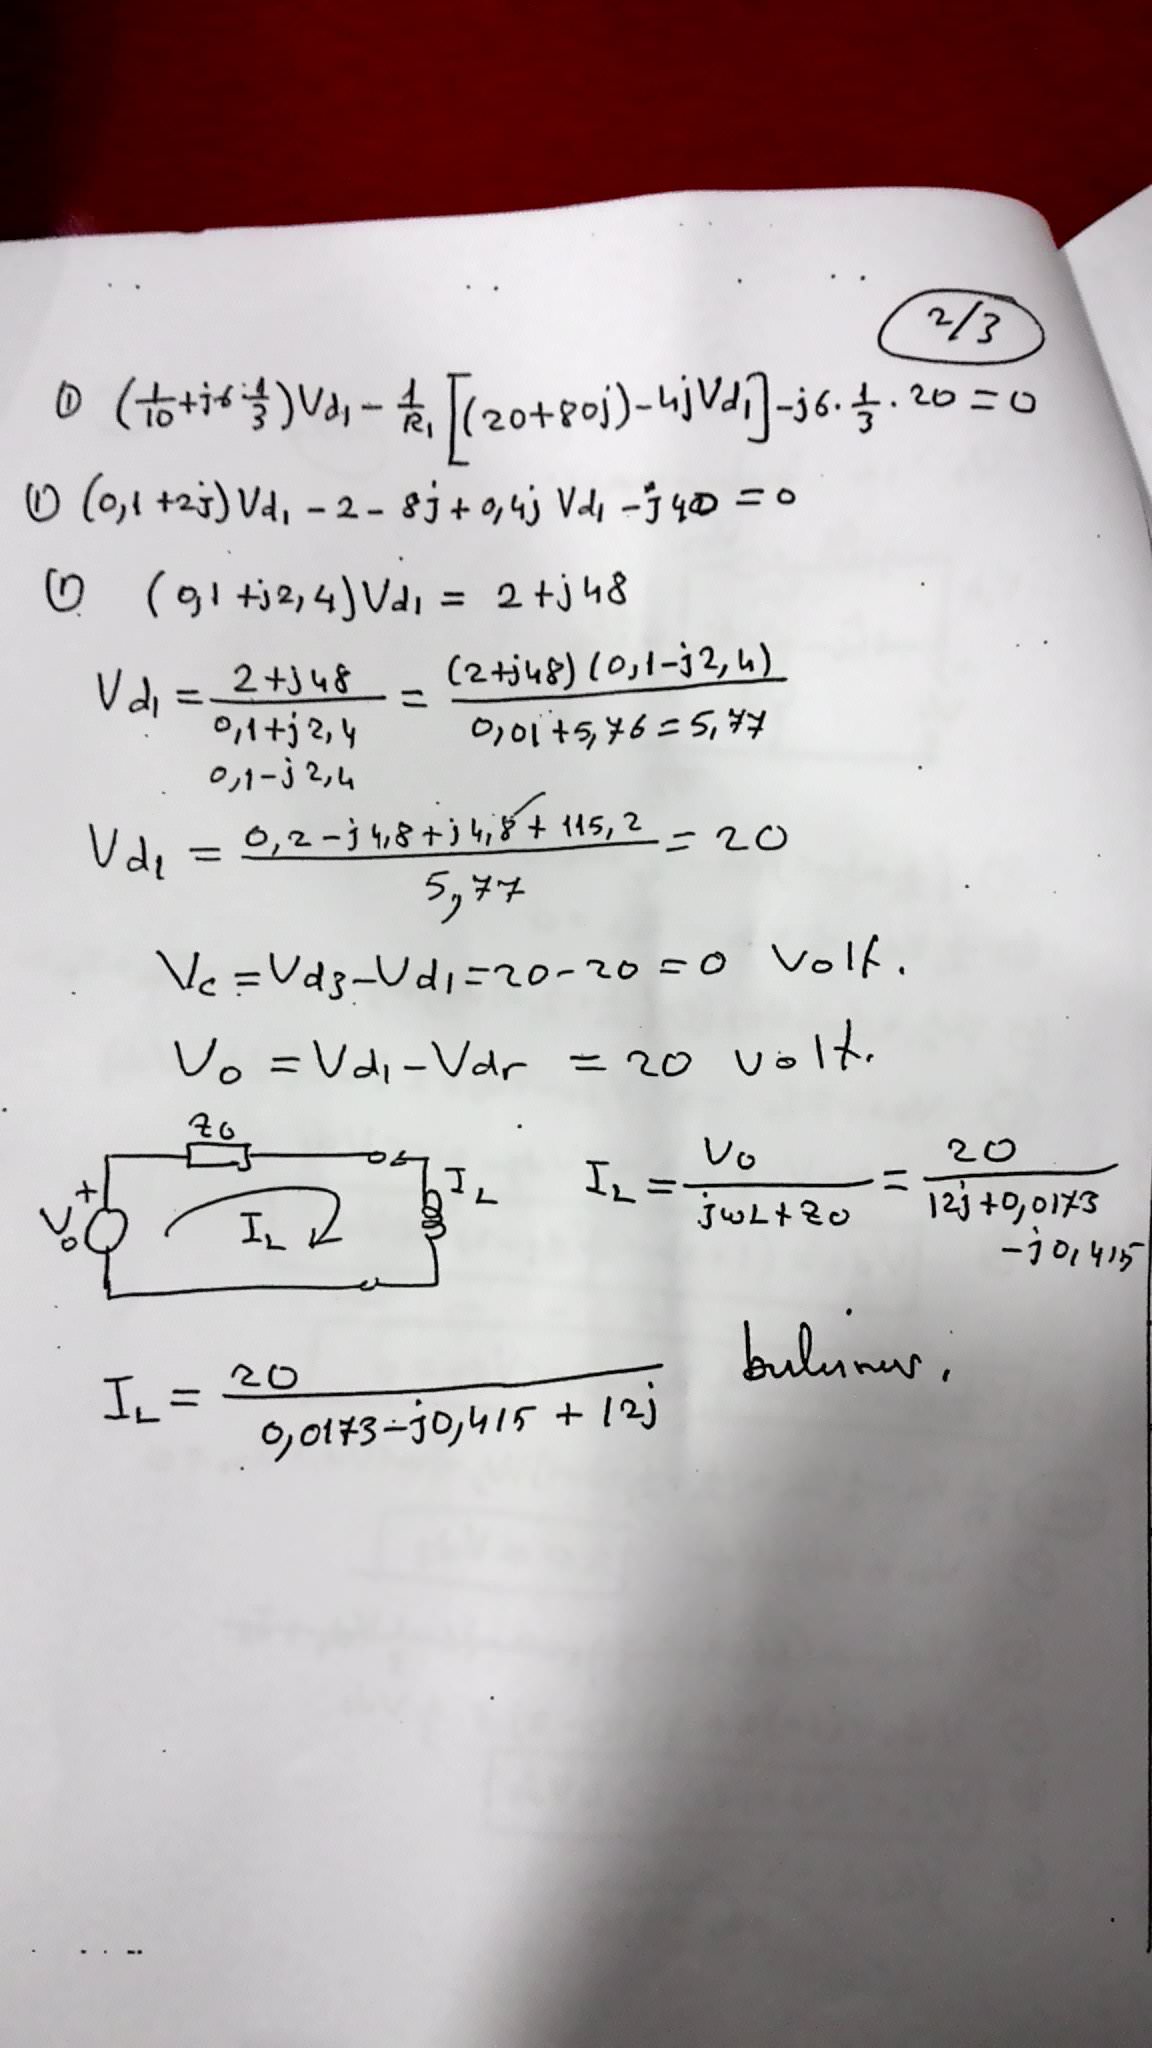 2/3
① (1/10+j6·1/3)Vd₁ - 1/R₁ [(20+80j)-4jVd₁] -j6·1/3·20=0
① (0,1+2j)Vd₁ -2-8j+0,4j Vd₁ -j40=0
① (0,1+j2,4)Vd₁ = 2+j48
Vd₁ = (2+j48)/(0,1+j2,4) = (2+j48)(0,1-j2,4)/(0,01+5,76=5,77)
0,1-j2,4
Vd₁ = (0,2-j4,8+j4,8+115,2)/5,77 = 20
Vc=Vd3-Vd₁=20-20=0 Volt.
Vo = Vd₁-Vdr = 20 volt.
Zo
+ Vo IL IL IL = Vo/(jωL+Zo) = 20/(12j+0,0173-j0,415)
IL = 20/(0,0173-j0,415+12j) bulunur.